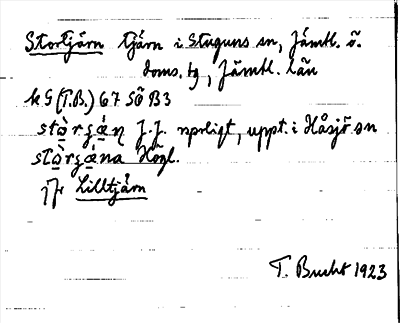 Stortjärn tjärn i Stuguns sn, Jämtl. ö.
doms. tg, Jämtl. län
k G (T.B.) 67 SÖ B3
J.J. uppt. i Håsjö sn
Högl.
jfr Lilltjärn
T. Bucht 1923